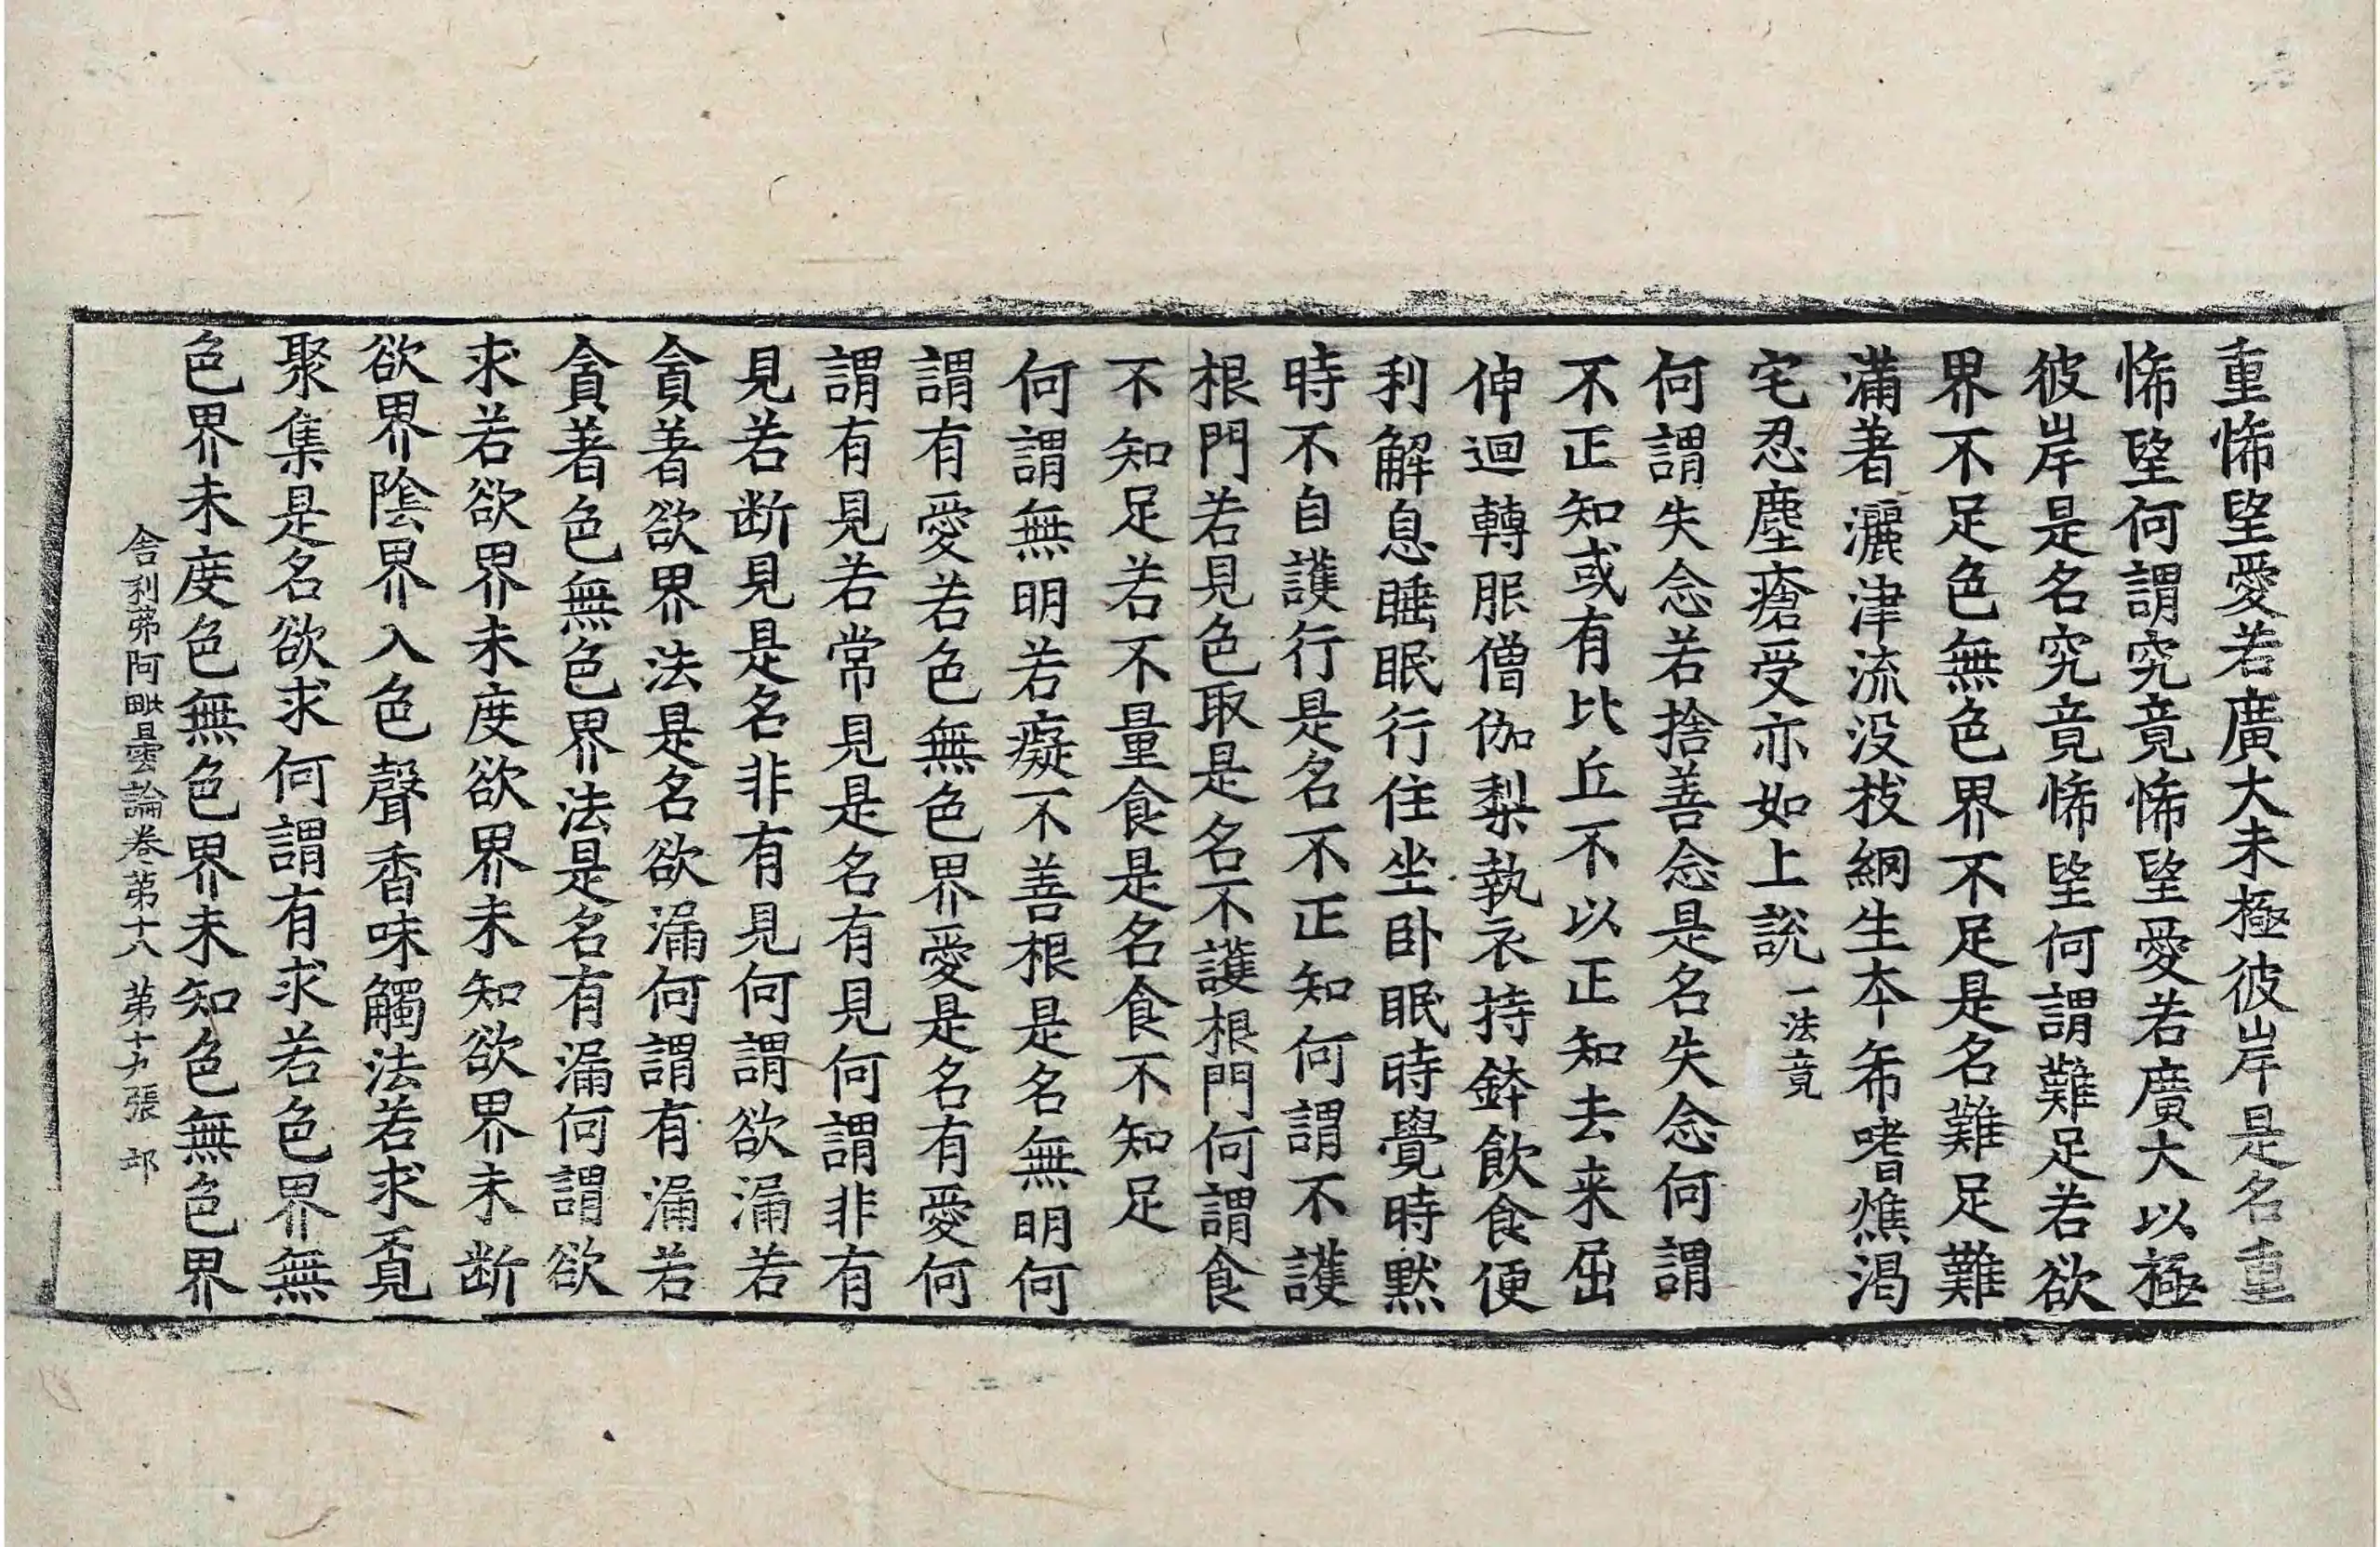 重悕望愛若廣大未極彼岸是名重
悕望何謂究竟悕望愛若廣大以極
彼岸是名究竟悕望何謂難足若欲
界不足色無色界不足是名難足難
滿著灑津流没枝網生本希嗜燋渴
宅忍塵瘡受亦如上說一法竟
何謂失念若捨善念是名失念何謂
不正知或有比丘不以正知去来屈
伸迴轉服僧伽梨執衣持鉢飲食便
利解息睡眠行住坐卧眠時覺時默
時不自護行是名不正知何謂不護
根門若見色取是名不護根門何謂食
不知足若不量食是名食不知足
何謂無明若癡不善根是名無明何
謂有愛若色無色界愛是名有愛何
謂有見若常見是名有見何謂非有
見若断見是名非有見何謂欲漏若
貪著欲界法是名欲漏何謂有漏若
貪著色無色界法是名有漏何謂欲
求若欲界未度欲界未知欲界未断
欲界陰界入色聲香味觸法若求覓
聚集是名欲求何謂有求若色界無
色界未度色無色界未知色無色界
舍利弗阿毗曇論卷第十八 第十九張 邙